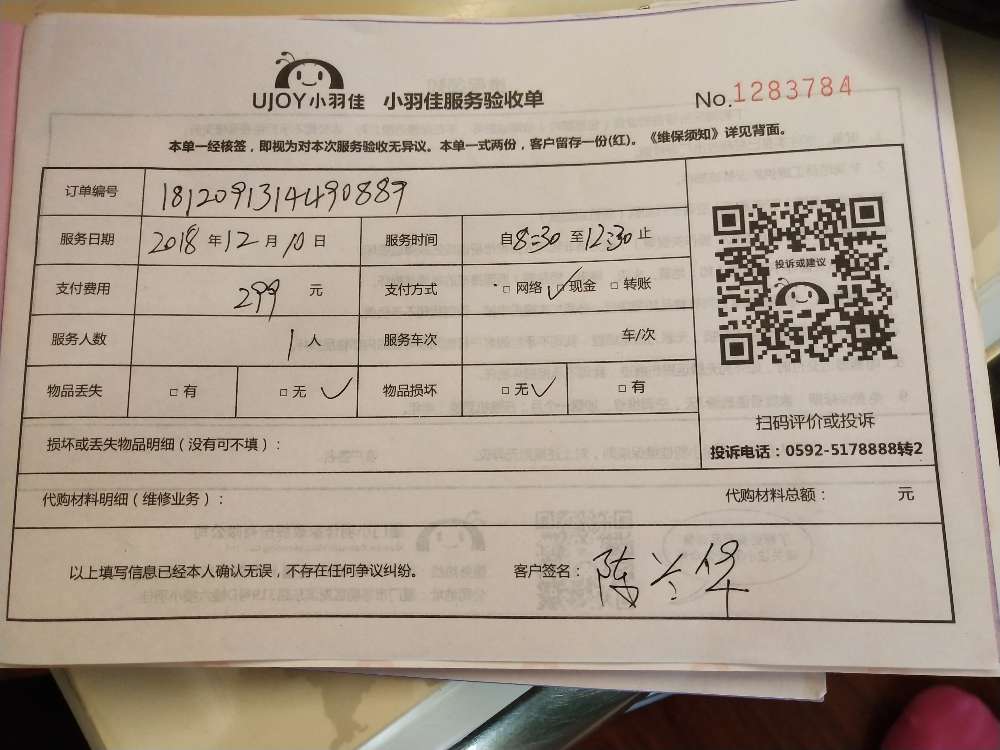 UJOY小羽佳 小羽佳服务验收单 No.1283784
本单一经核签，即视为对本次服务验收无异议。本单一式两份，客户留存一份(红)。《维保须知》详见背面。
订单编号 1812091314490889
服务日期 2018 年 12 月 10 日 服务时间 自 8:30 至 12:30 止
支付费用 299 元 支付方式 □ 网络 ✓□ 现金 □ 转账
服务人数 1 人 服务车次 车/次
物品丢失 □ 有 □ 无 ✓ 物品损坏 □ 无 ✓ □ 有
投诉或建议
扫码评价或投诉
投诉电话：0592-5178888转2
损坏或丢失物品明细（没有可不填）：
代购材料明细（维修业务）： 代购材料总额： 元
以上填写信息已经本人确认无误，不存在任何争议纠纷。 客户签名：陈